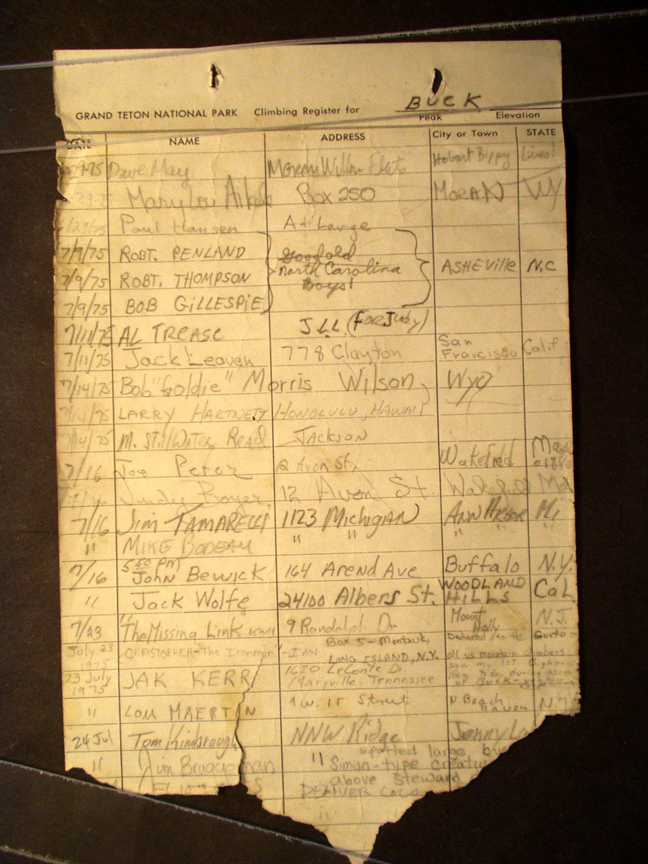 GRAND TETON NATIONAL PARK Climbing Register for BUCK
Peak Elevation
DATE NAME ADDRESS City or Town STATE
Dave May Moran Willow
Mary Lou Box 250 MORAN WY
Paul Hansen At Large
7/9/75 ROBT. PENLAND Good old
7/9/75 ROBT. THOMPSON North Carolina ASHEVILLE N.C
7/9/75 BOB GILLESPIE Boys!
7/11/75 AL TREASE JLL (FOR JUDY)
7/11/75 Jack Leaven 778 Clayton San Francisco Calif
7/14/75 Bob "Goldie" Morris Wilson Wyo
LARRY HARTNETT HONOLULU, HAWAII
M. StillWater Read JACKSON
7/16 Joe Peter Avon St. Wakefield Mass
Judy Boyer 12 Avon St. Wakefield
7/16 Jim TAMARELLI 1123 Michigan Ann Arbor Mi
" MIKE " " " "
7/16 5:50 PM John Bewick 164 Arend Ave Buffalo N.Y.
" Jack Wolfe 24100 Albers St. WOODLAND HILLS Cal
7/23 "The Missing Link 9 Randolph Dr. Mount Holly N.J.
July 23 1975 CHRISTOPHER "The Ironman" - IAN Box 5 - Montauk LONG ISLAND, N.Y. all us mountain climbers
23 July 1975 JAK KERR 1620 LeConte Dr Maryville, Tennessee
" LOU MAERTIN W. 15 Street N Beach Haven N.J.
24 Jul Tom Kimbrough NNW Ridge Jenny
" Jim " spotted large
Simian-type
above Steward
DENVER